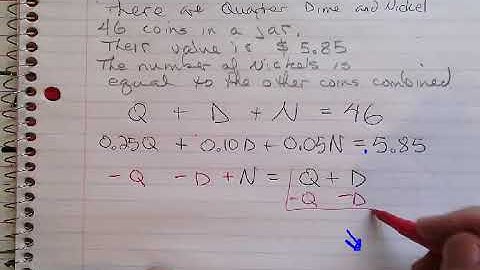 There are Quarter Dime and Nickel
46 coins in a jar.
Their value is $5.85
The number of Nickels is
equal to the other coins combined
Q + D + N = 46
0.25Q + 0.10D + 0.05N = 5.85
-Q -D + N = Q + D
-Q -D